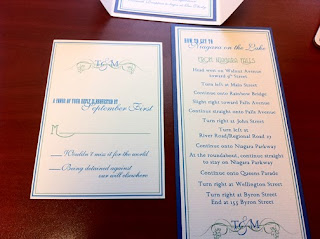 T&M
A SIGN OF YOUR REPLY IS REQUESTED BY
September First
M
Wouldn't miss it for the world
Being detained against
our will elsewhere
HOW TO GET TO
Niagara on the Lake
FROM NIAGARA FALLS
Head west on Walnut Avenue
toward 4th Street
Turn left at Main Street
Continue onto Rainbow Bridge
Slight right toward Falls Avenue
Continue straight onto Falls Avenue
Turn right at John Street
Turn left at
River Road/Regional Road
Continue onto Niagara Parkway
At the roundabout, continue straight
to stay on Niagara Parkway
Continue onto Queens Parade
Turn right at Wellington Street
Turn left at Byron Street
End at 155 Byron Street
T&M